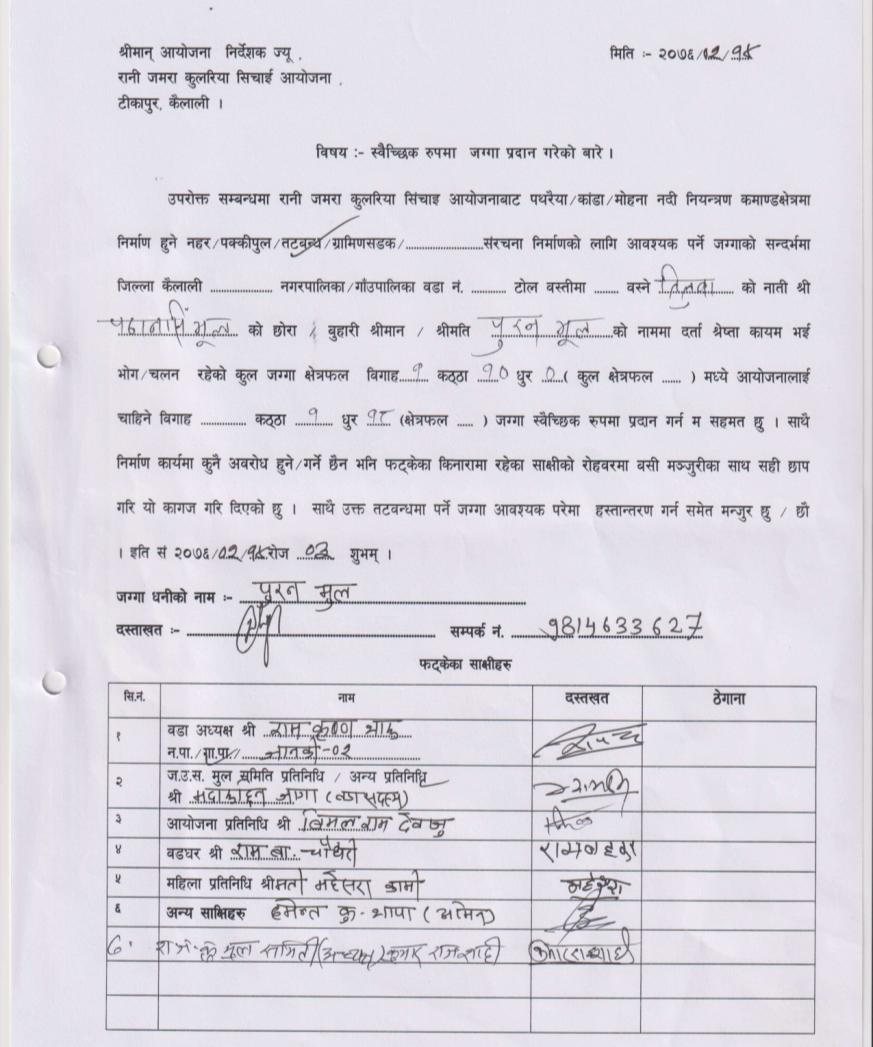 श्रीमान् आयोजना निर्देशक ज्यू , मिति :- २०७६/०२/१५
रानी जमरा कुलरिया सिचाई आयोजना ,
टीकापुर, कैलाली ।
विषय :- स्वैच्छिक रुपमा जग्गा प्रदान गरेको बारे ।
उपरोक्त सम्बन्धमा रानी जमरा कुलरिया सिंचाइ आयोजनाबाट पथरैया/कांडा/मोहना नदी नियन्त्रण कमाण्डक्षेत्रमा
निर्माण हुने नहर/पक्कीपुल/तटबन्ध/ग्रामिणसडक/......................संरचना निर्माणको लागि आवश्यक पर्ने जग्गाको सन्दर्भमा
जिल्ला कैलाली .................. नगरपालिका/गाँउपालिका वडा नं. .......... टोल वस्तीमा ........ वस्ने को नाती श्री
को छोरा / बुहारी श्रीमान / श्रीमति पुरन मूल को नाममा दर्ता श्रेष्ता कायम भई
भोग/चलन रहेको कुल जग्गा क्षेत्रफल विगाह १ कठ्ठा १० धुर ० ( कुल क्षेत्रफल ...... ) मध्ये आयोजनालाई
चाहिने विगाह ............... कठ्ठा १ धुर १८ (क्षेत्रफल ..... ) जग्गा स्वैच्छिक रुपमा प्रदान गर्न म सहमत छु । साथै
निर्माण कार्यमा कुनै अवरोध हुने/गर्ने छैन भनि फट्केका किनारामा रहेका साक्षीको रोहवरमा बसी मञ्जुरीका साथ सही छाप
गरि यो कागज गरि दिएको छु । साथै उक्त तटवन्धमा पर्ने जग्गा आवश्यक परेमा हस्तान्तरण गर्न समेत मन्जुर छु / छौ
। इति सं २०७६/०२/१५ रोज ०३ शुभम् ।
जग्गा धनीको नाम :- पुरन मुल
दस्ताखत :- सम्पर्क नं. 9814633627
फट्केका साक्षीहरु
सि.नं. नाम दस्तखत ठेगाना
१ वडा अध्यक्ष श्री राम कृष्ण
न.पा./गा.पा. जानकी-०२
२ ज.उ.स. मुल समिति प्रतिनिधि / अन्य प्रतिनिधि
श्री
३ आयोजना प्रतिनिधि श्री विमल राम देवजु
४ वडघर श्री राम ब. चौधरी
५ महिला प्रतिनिधि श्रीमती महेसरा कामी
६ अन्य साक्षिहरु हेमन्त कु. थापा (अमिन)
७. मुल समिती (अध्यक्ष)